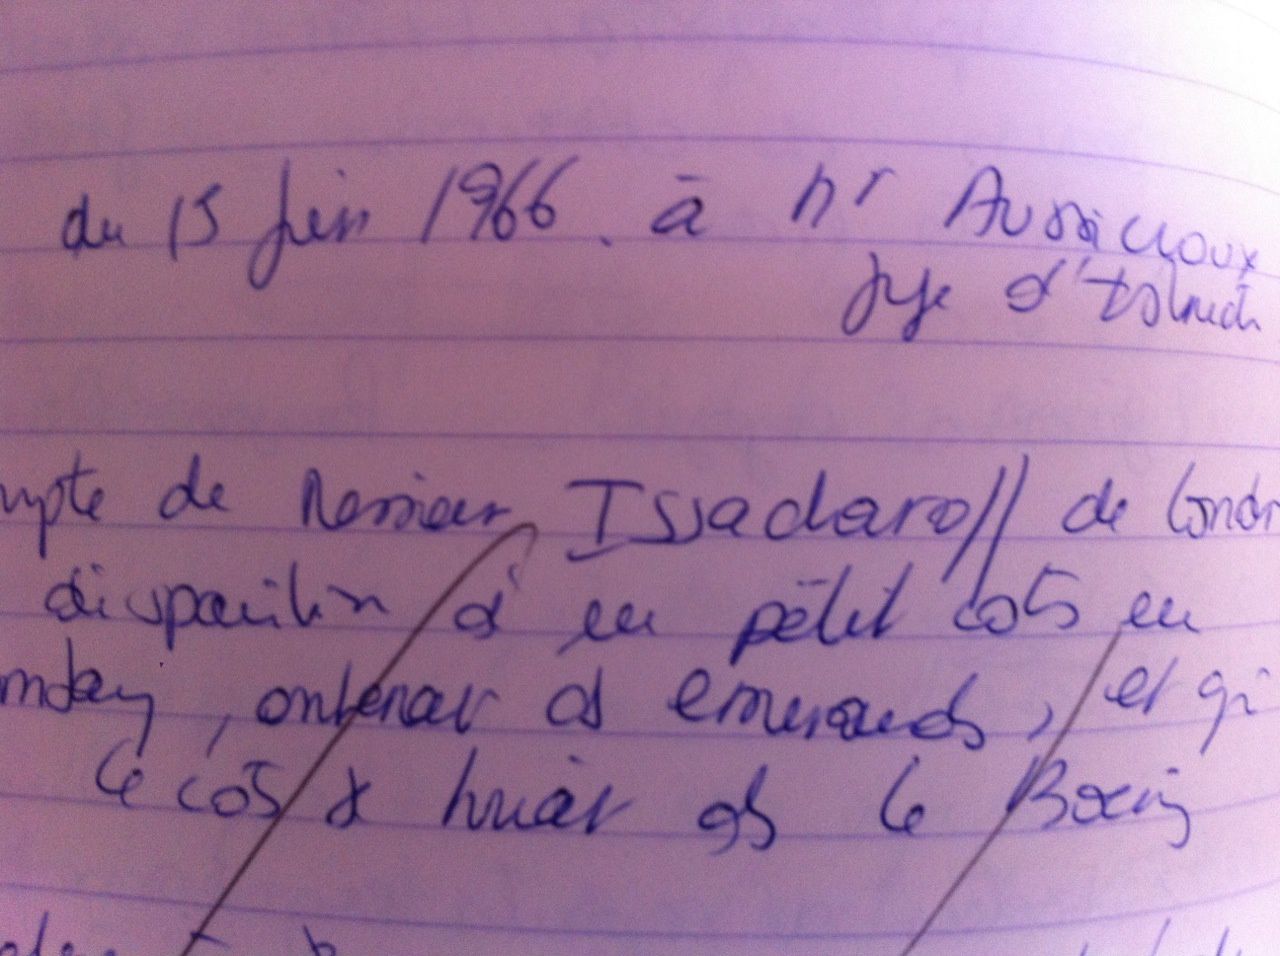 du 15 juin 1966. à Mr Aussicloux
juge d'Instruct
mpte de Monsieur Issadaroff de Londr
disparition d'un petit colis en
mbay, contenant ds emeraudes, et qi
le colis se trouvait ds le Boeing